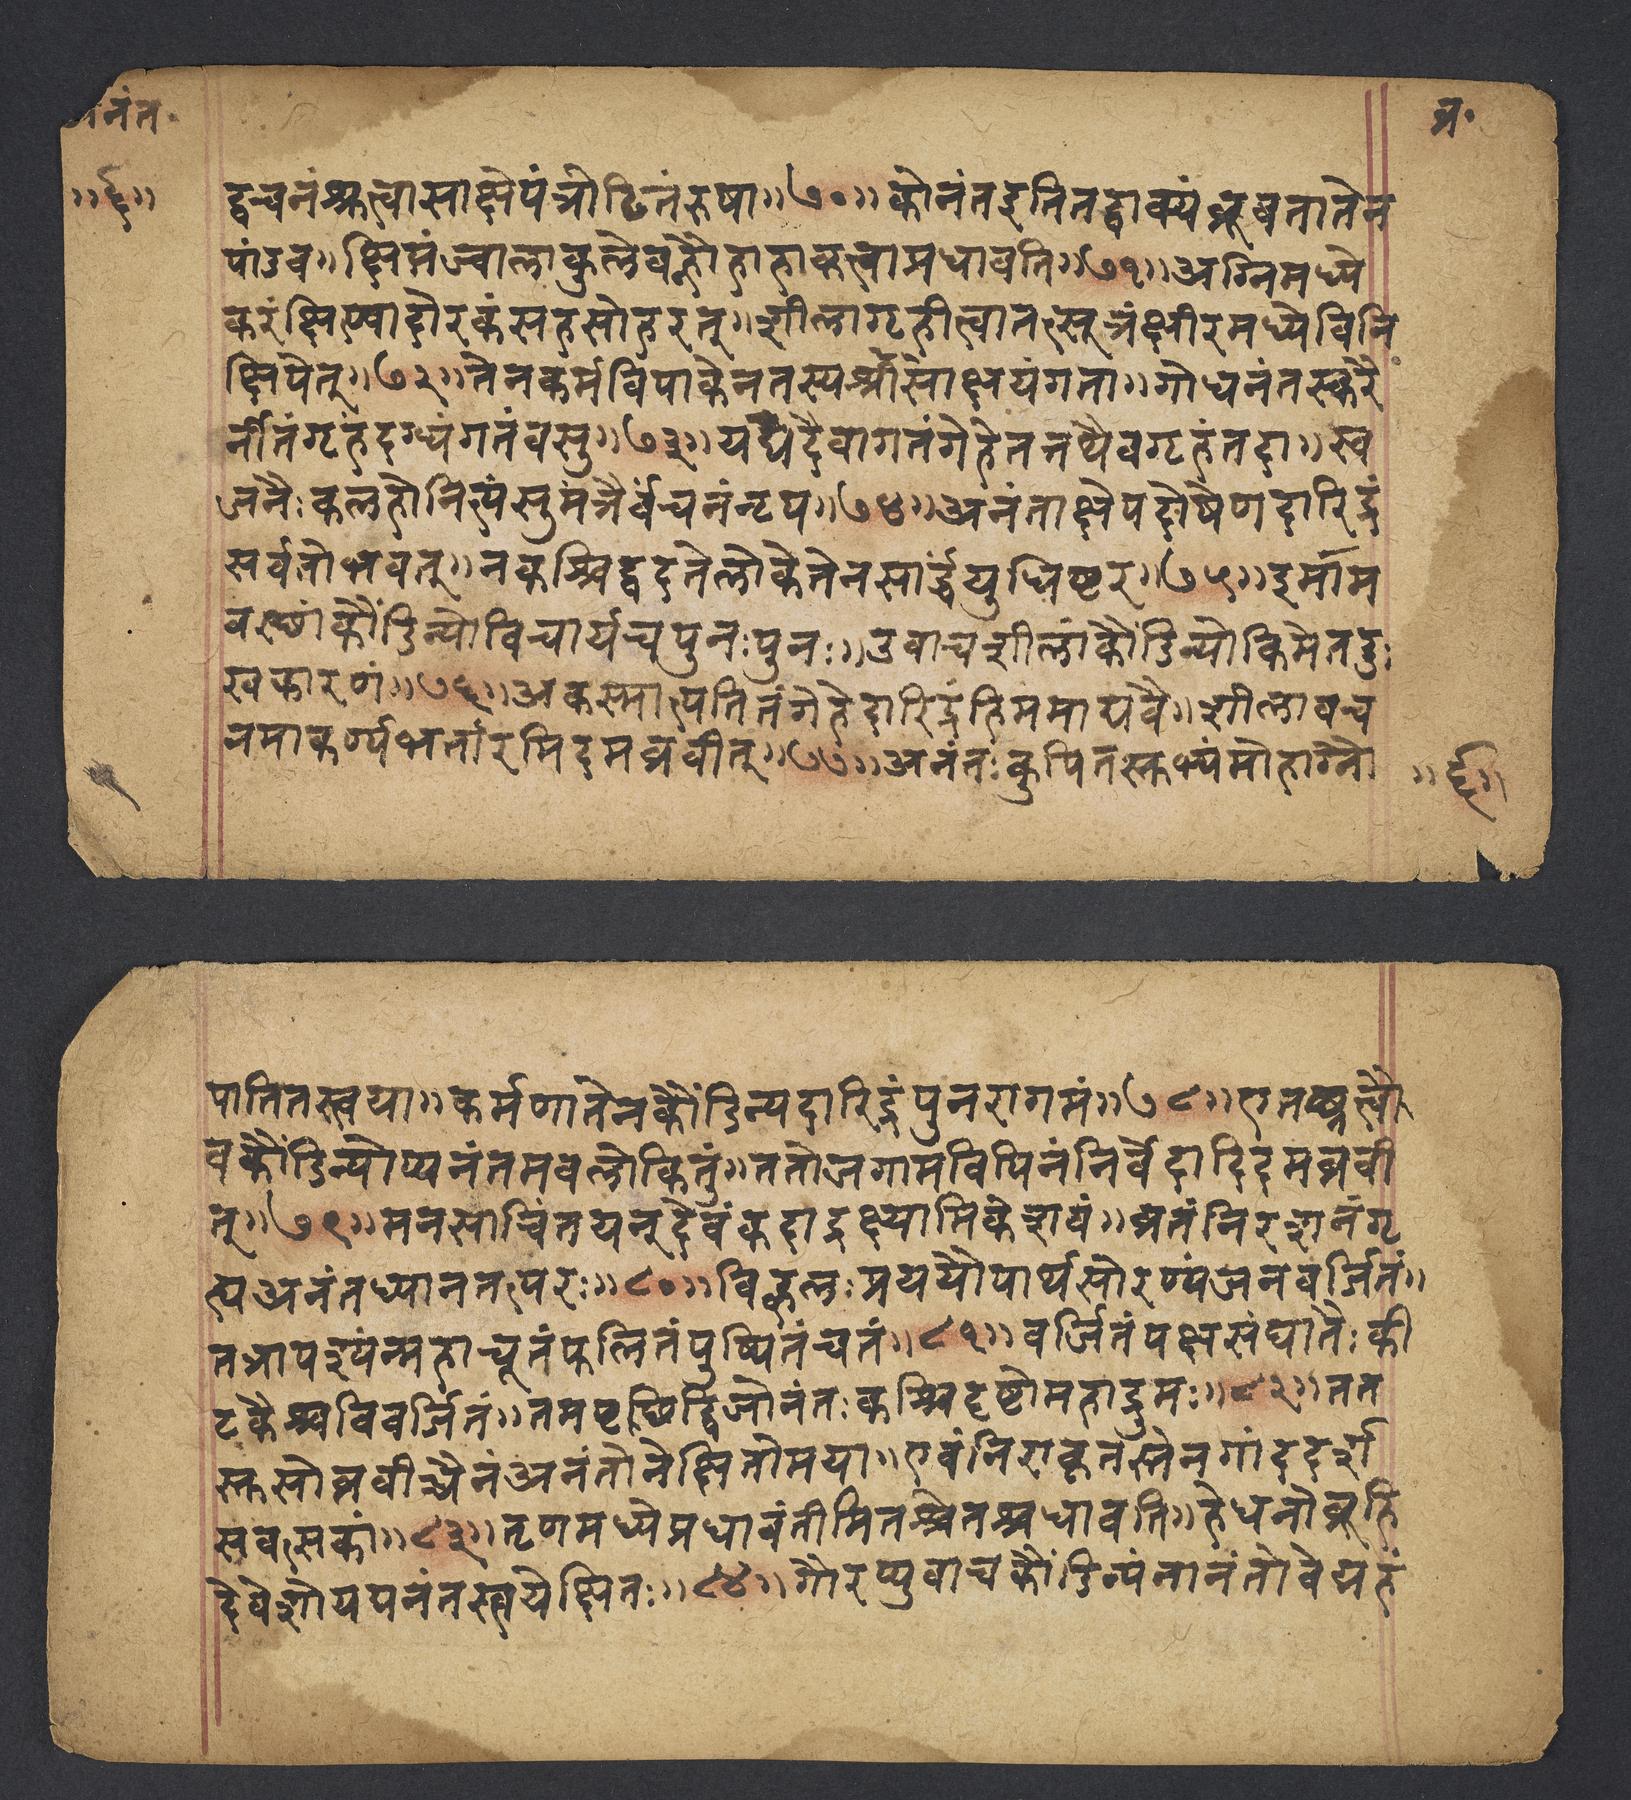 अनंत
व्र॰
॥६॥
द्वचनंश्रुत्वासाक्षेपंत्रोटितंरुषा॥७०॥कोनंतइतितद्वाक्यंब्रूवतातेन
पांडव॥क्षिप्तंज्वालाकुलेवह्नौहाहाकृत्वाप्रधावति॥७१॥अग्निमध्ये
करंक्षिप्त्वादोरकंसहसोहरत्॥शीलागृहीत्वातत्सूत्रंक्षीरमध्येविनि
क्षिपेत्॥७२॥तेनकर्मविपाकेनतस्यश्रीःसाक्षयंगता॥गोधनंतस्करै
र्नीतंगृहंदग्धंगतंवसु॥७३॥यद्यदैवागतंगेहेतत्तथैवगृहंतदा॥स्व
जनैःकलहोनित्यंसुमंत्रैर्वचनंनृप॥७४॥अनंताक्षेपदोषेणदारिद्रं
सर्वतोभवत्॥नकश्चिद्वदतेलोकेतेनसार्द्धंयुधिष्टर॥७५॥इमाम
वस्थांकौंडिन्योविचार्यचपुनःपुनः॥उवाचशीलांकौंडिन्योकिमेतद्दुः
खकारणं॥७६॥अकस्मात्पतितंगेहेदारिद्रंहिममाद्यवै॥शीलावच
नमाकर्ण्यभर्तारमिदमब्रवीत्॥७७॥अनंतःकुपितस्तुभ्यंमोहाग्नो
॥६॥
पातितस्त्वया॥कर्मणातेनकौंडिन्यदारिद्रंपुनरागमं॥७८॥एतच्छ्रुत्वै
वकौंडिन्योप्यनंतमवलोकितुं॥ततोजगामविपिनंनिर्वेदादिदमब्रवी
त्॥७९॥मनसाचिंतयन्देवंकदाद्रक्ष्यामिकेशवं॥व्रतंनिरशनंगृ
ह्यअनंतध्यानतत्परः॥८०॥विह्वलःप्रययौपार्थसोरण्यंजनवर्जितं॥
तत्रापश्यंन्महाचूतंफलितंपुष्पितंचतं॥८१॥वर्जितंपक्षसंघातैःकी
टकैश्चविवर्जितं॥तमपृच्छद्द्विजोनंतःकश्चिदृष्टोमहाद्रुमः॥८२॥तत
स्तुसोब्रवीच्चैनंअनंतोनेक्षितोमया॥एवंनिराकृतस्तेनगांददर्श
सवत्सकां॥८३॥तृणमध्येप्रधावंतीमितश्चेतश्चधावति॥हेधेनोब्रूहि
देवेशोयद्यनंतस्त्वयेक्षितः॥८४॥गौरप्युवाचकौंडिन्यंनानंतोवेद्म्यहं